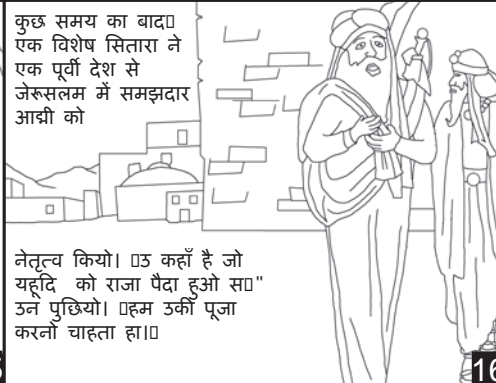 कुछ समय का बाद▯
एक विशेष सितारा ने
एक पूर्वी देश से
जेरूसलम में समझदार
आद्मी को
नेतृत्व कियो। ▯उ कहाँ है जो
यहूदि को राजा पैदा हुओ स▯"
उन पुछियो। ▯हम उकी पूजा
करनो चाहता हा।▯
16